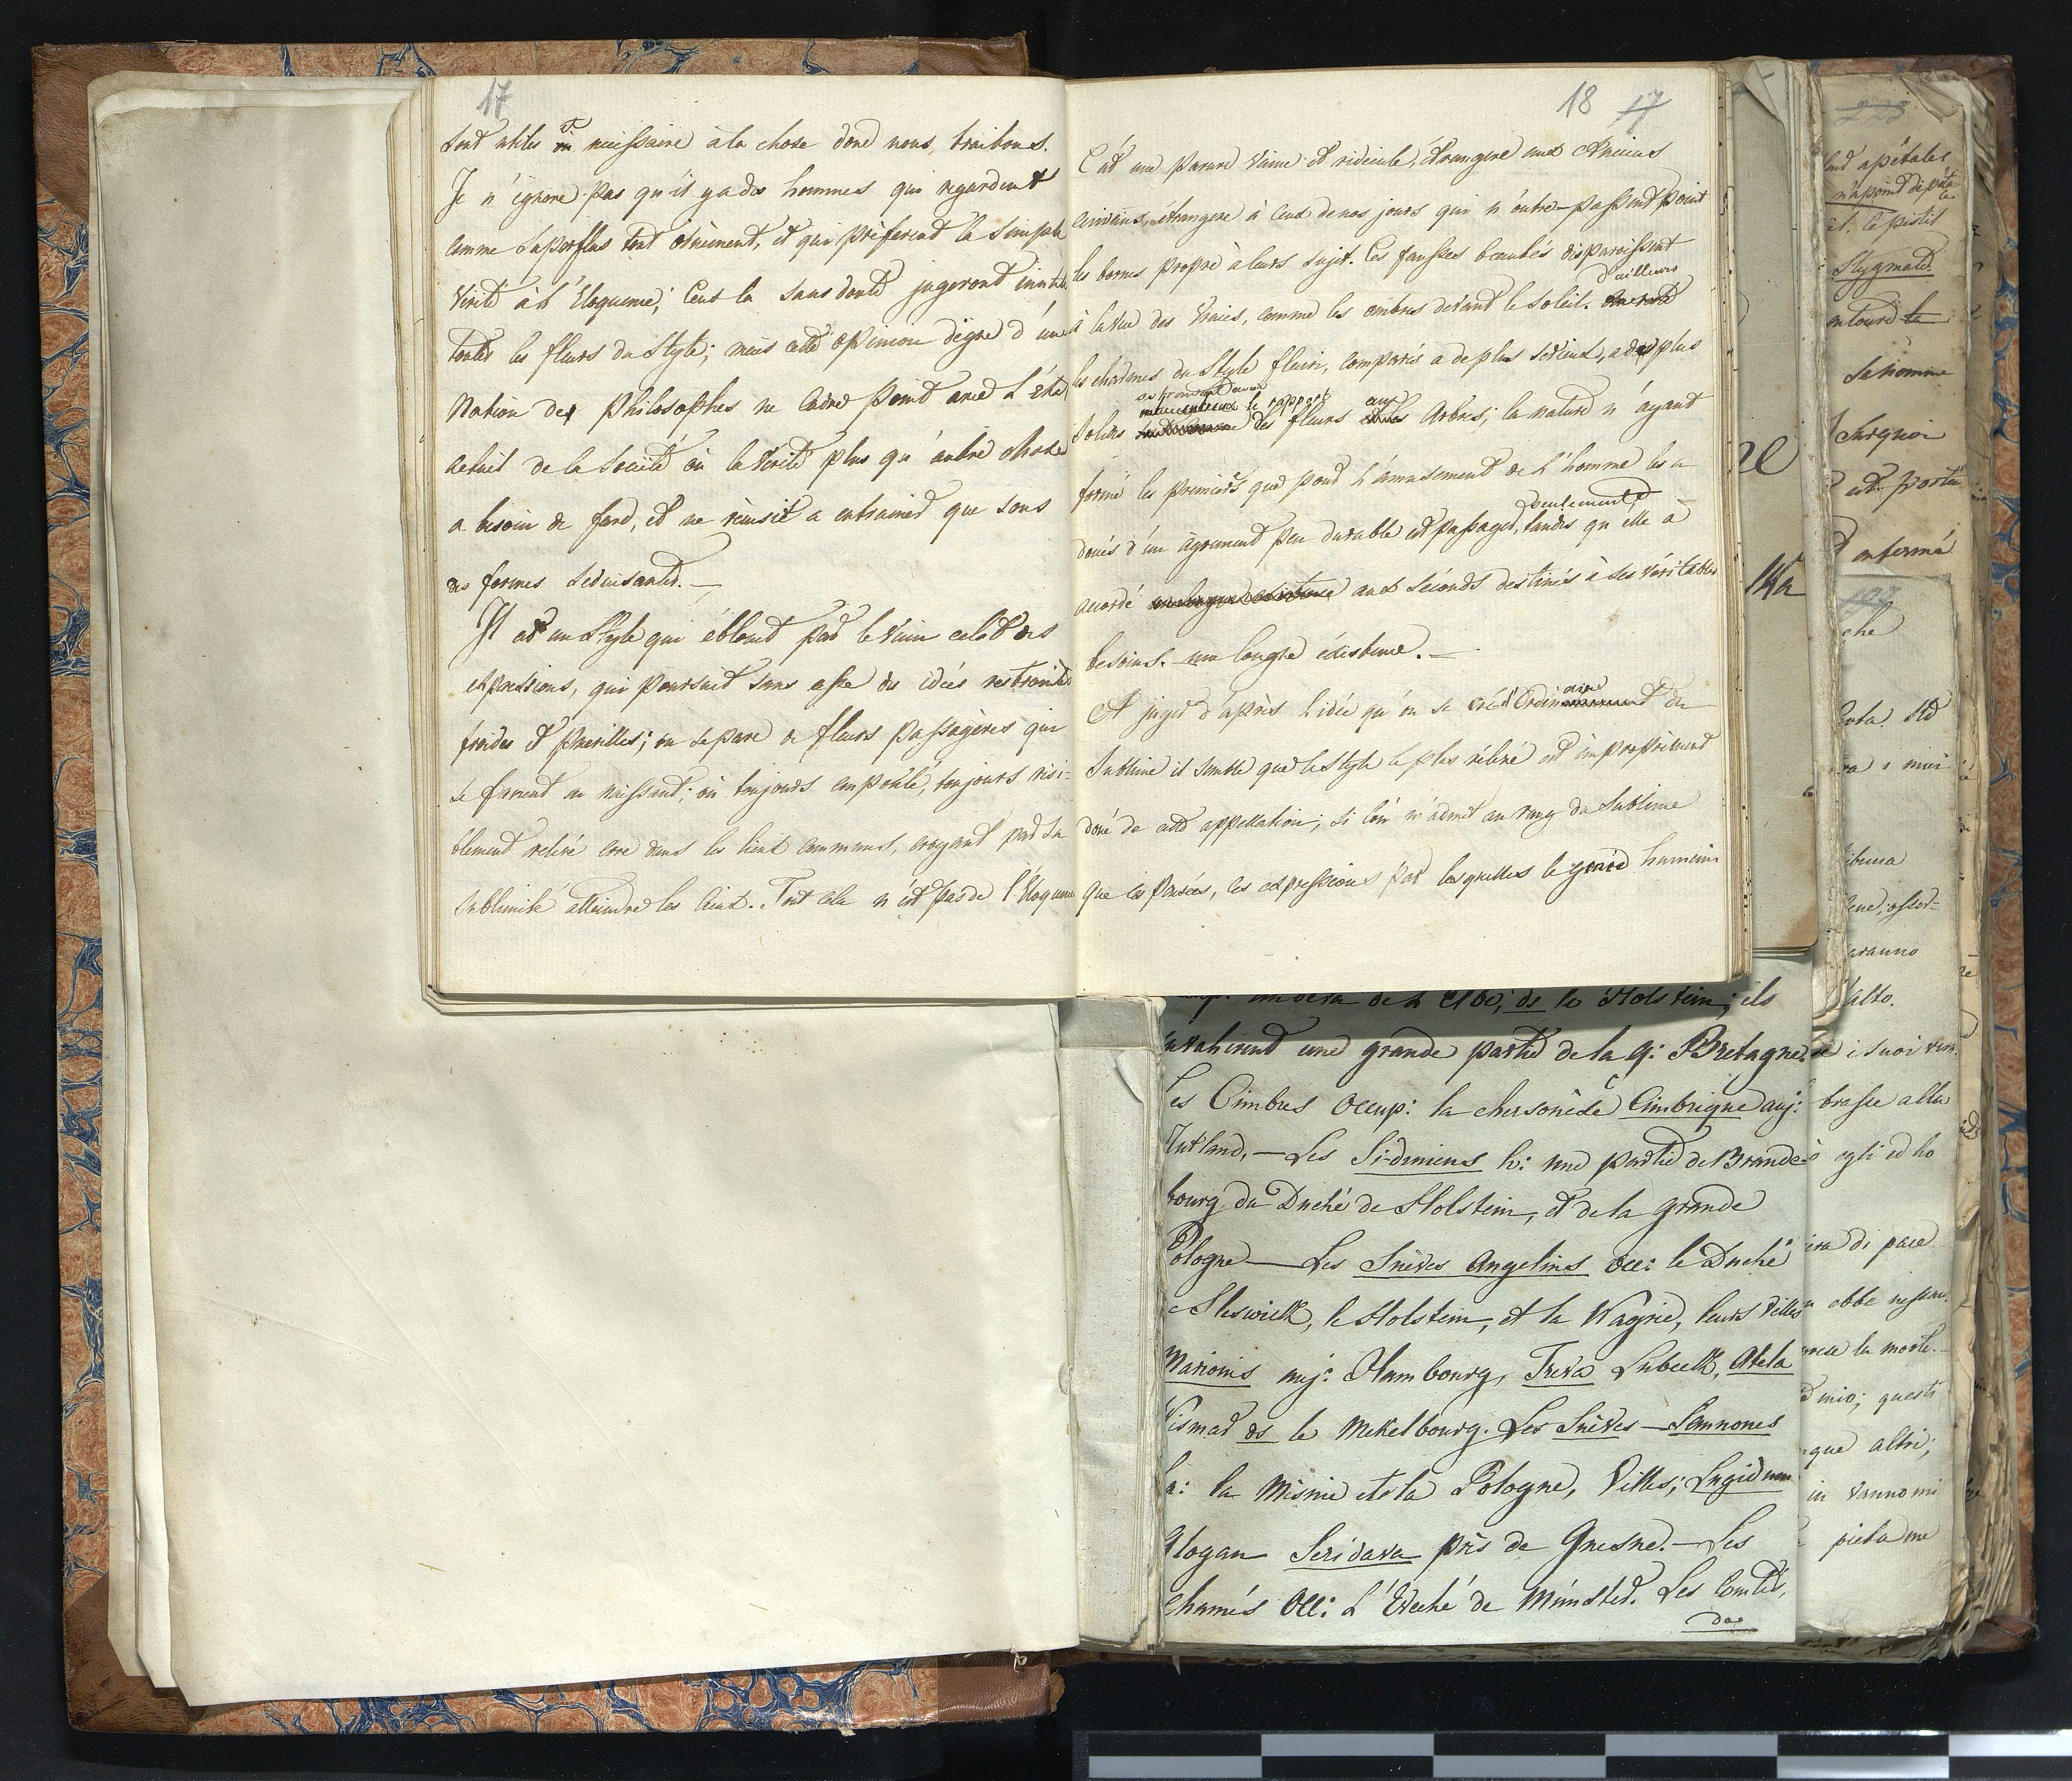 17
sont utiles et nécessaire à la chose dond nous traitons.
Je n'ignore pas qu'il y a des hommes qui regardent
comme superflus tout ornement, et qui préferent la simple
Vérité à l'Eloquence; Ceus la sans doute jugeront inutiles
toutes les fleurs du Style; mais cette opinion digne d'une
Nation des Philosophes ne cadre point avec l'état
actuel de la Société où la Vérité plus qu'autre chose
a besoin de fard, et ne réussit a entrainer que sous
des formes seduisantes. —
Il est un Style qui éblouit par le vain eclat des
expressions, qui poursuit sans cesse des idées restraintes
froides et puerilles; ou se pare de fleurs passagères qui
se fanent en naissant; ou toujours empoulé, toujours risi-
blement relévé erre dans les lieux communs, croyant par sa
sublimité atteindre les Cieux. Tout cela n'est pas de l'Eloquence
18 17
C'est une parure vaine et ridicule, étrangere aux Anciens
écrivains, étrangere à Ceux de nos jours qui n'outre-passent point
les bornes propre à leurs sujet. Ces fausses beautés disparoissent
à la vue des Vraies, comme les ombres devant le Soleil. d'ailleurs
les charmes du Style fleuri, comparés a de plus serieux, a des plus
solides le rapport des fleurs aux Arbres; la nature n'ayant
formé les premiers que pour l'amusement de l'homme les a
doués d'un agrement peu durable et passager, seulement, tandis qu'elle a
accordé aux seconds destinés à ses véritables
besoins. — une longue éxistence. —
A juger d'après l'idée qu'on se créé Ordinaire du
Sublime il semble que le Style le plus rélévé est improprement
doué de cette appellation; si l'on n'admet au rang du Sublime
que les Pensées, les expressions par lesquelles le genie humain
de l'Elbe, ds le Holstein; ils
envahirent une grande partie de la G: Bretagne.
Les Cimbres Occup: la chersonèse Cimbrique auj:
Jutland, — Les Sidiniens h: une partie de Brande-
bourg du Duché de Holstein, et de la grande
Pologne — Les Suèves Angelins Occ: le Duché
Sleswick, le Holstein, et la Wagrie, leurs Villes
Marionis auj: Hambourg, Treva Lubeck, Alela
Wismar ds le Mekelbourg. Les Suèves — Semnones
ha: la Misnie et la Pologne, Villes; Lugidunum
Glogau Seridava près de Gnesne. — Les
Chamés Occ: L'Evêché de Münster. Les Comtés,
des
14a
223
apétales
n'a point de péta
et. le pistil
Stygmate.
entouré le
Se nomme
enfermé
193
che
alto.
e i suoi
egli ed ho
di pace
ebbe
la morte.
mio; questi
que altri;
in vanno mi
pieta me